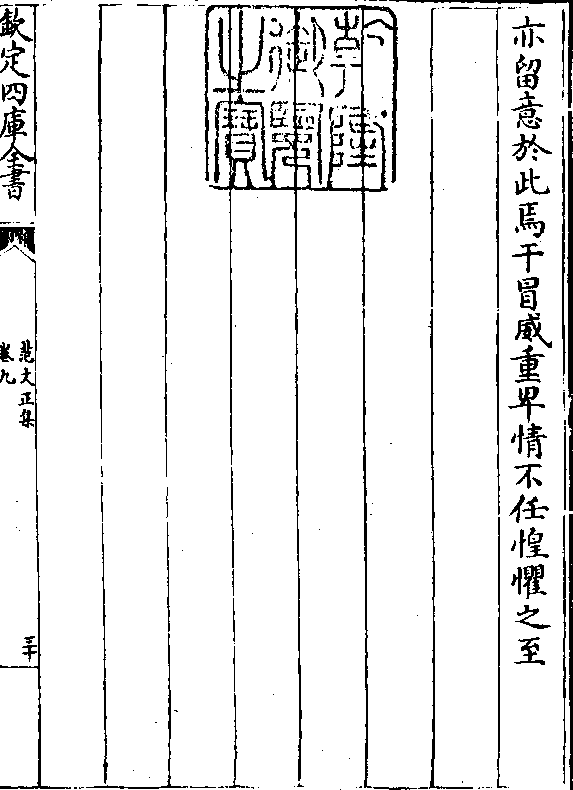 亦留意於此焉干冒威重卑情不任惶懼之至
乾隆御覽之寶
欽定四庫全書
范文正集
卷九
三十